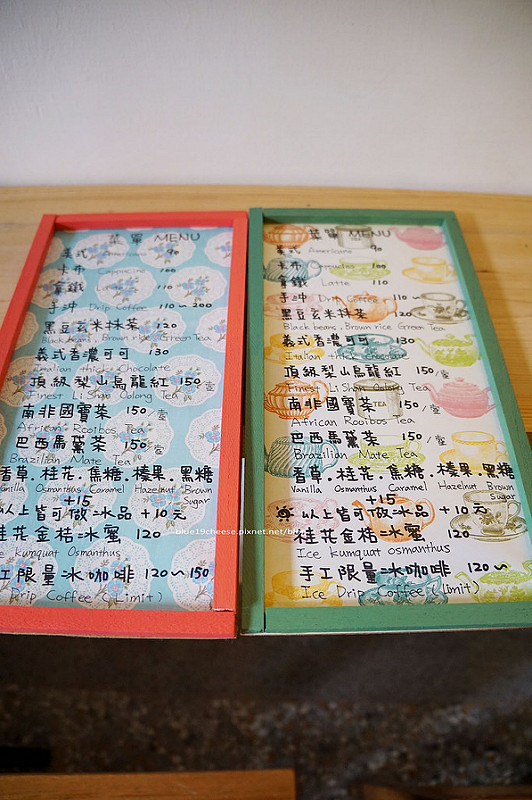 菜單 MENU
美式 Americano 90
卡布 Cappuccino 100
拿鐵 Latte 110
手沖 Drip Coffee 110～200
黑豆玄米抹茶 120
Black beans, Brown rice Green Tea
義式香濃可可 130
Italian thick chocolate
頂級梨山烏龍紅 150/壺
Finest Li Shan Oolong Tea
南非國寶茶 150/壺
African Rooibos Tea
巴西馬黛茶 150/壺
Brazilian Mate Tea
香草.桂花.焦糖.榛果.黑糖
Vanilla Osmanthus Caramel Hazelnut Brown
Sugar
+15
以上皆可做冰品 +10元
桂花金桔冰蜜 120
Ice kumquat Osmanthus
手工限量冰咖啡 120～150
Drip Coffee (Limit)
菜單 MENU
美式 Americano 90
卡布 100
拿鐵 Latte 110
手沖 Drip Coffee 110～
黑豆玄米抹茶 120
Black beans, Brown rice Green Tea
義式香濃可可 130
Italian thick chocolate
頂級梨山烏龍紅 150/壺
Finest Li Shan Oolong Tea
南非國寶茶 150/壺
African Rooibos Tea
巴西馬黛茶 150/壺
Brazilian Mate Tea
香草.桂花.焦糖.榛果.黑糖
Vanilla Osmanthus Caramel Hazelnut Brown
Sugar
+15
※以上皆可做冰品 +10元
桂花金桔冰蜜 120
Ice kumquat osmanthus
手工限量冰咖啡 120～
Ice Drip Coffee (Limit)
blue19cheese.pixnet.net/bl